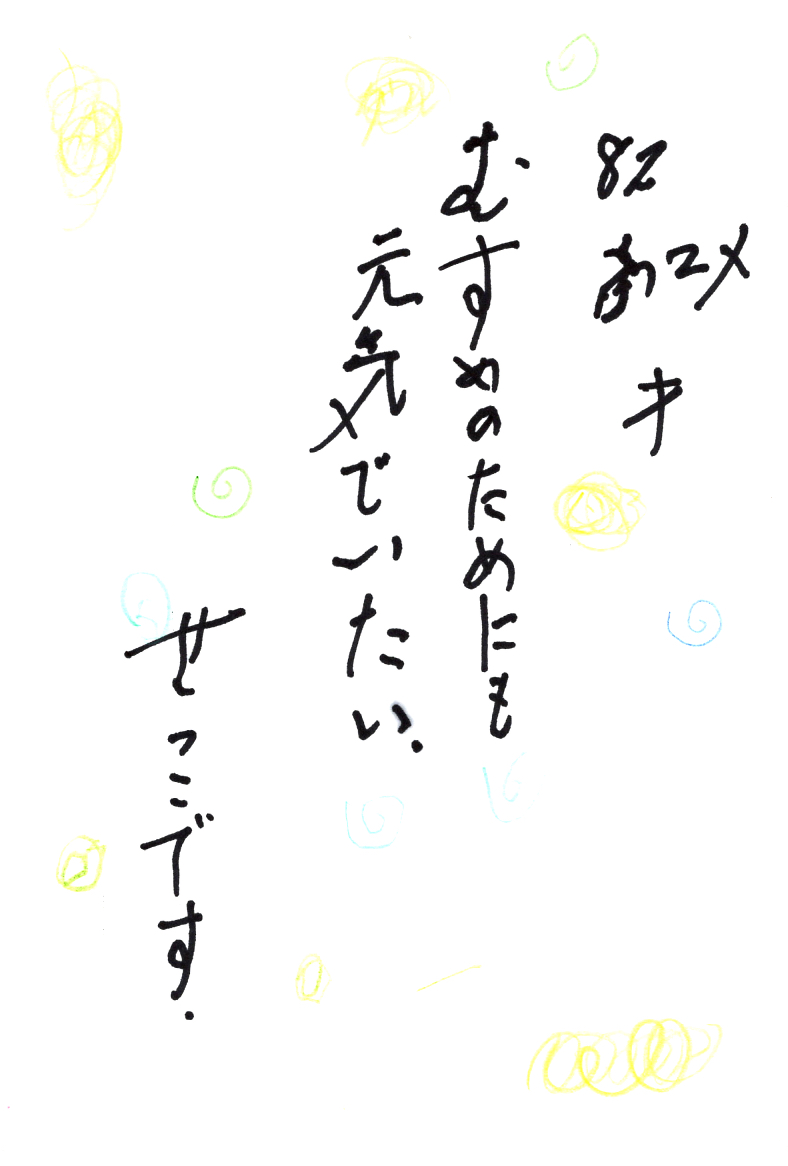 82
才
むすめのためにも
元気でいたい.
せこです.